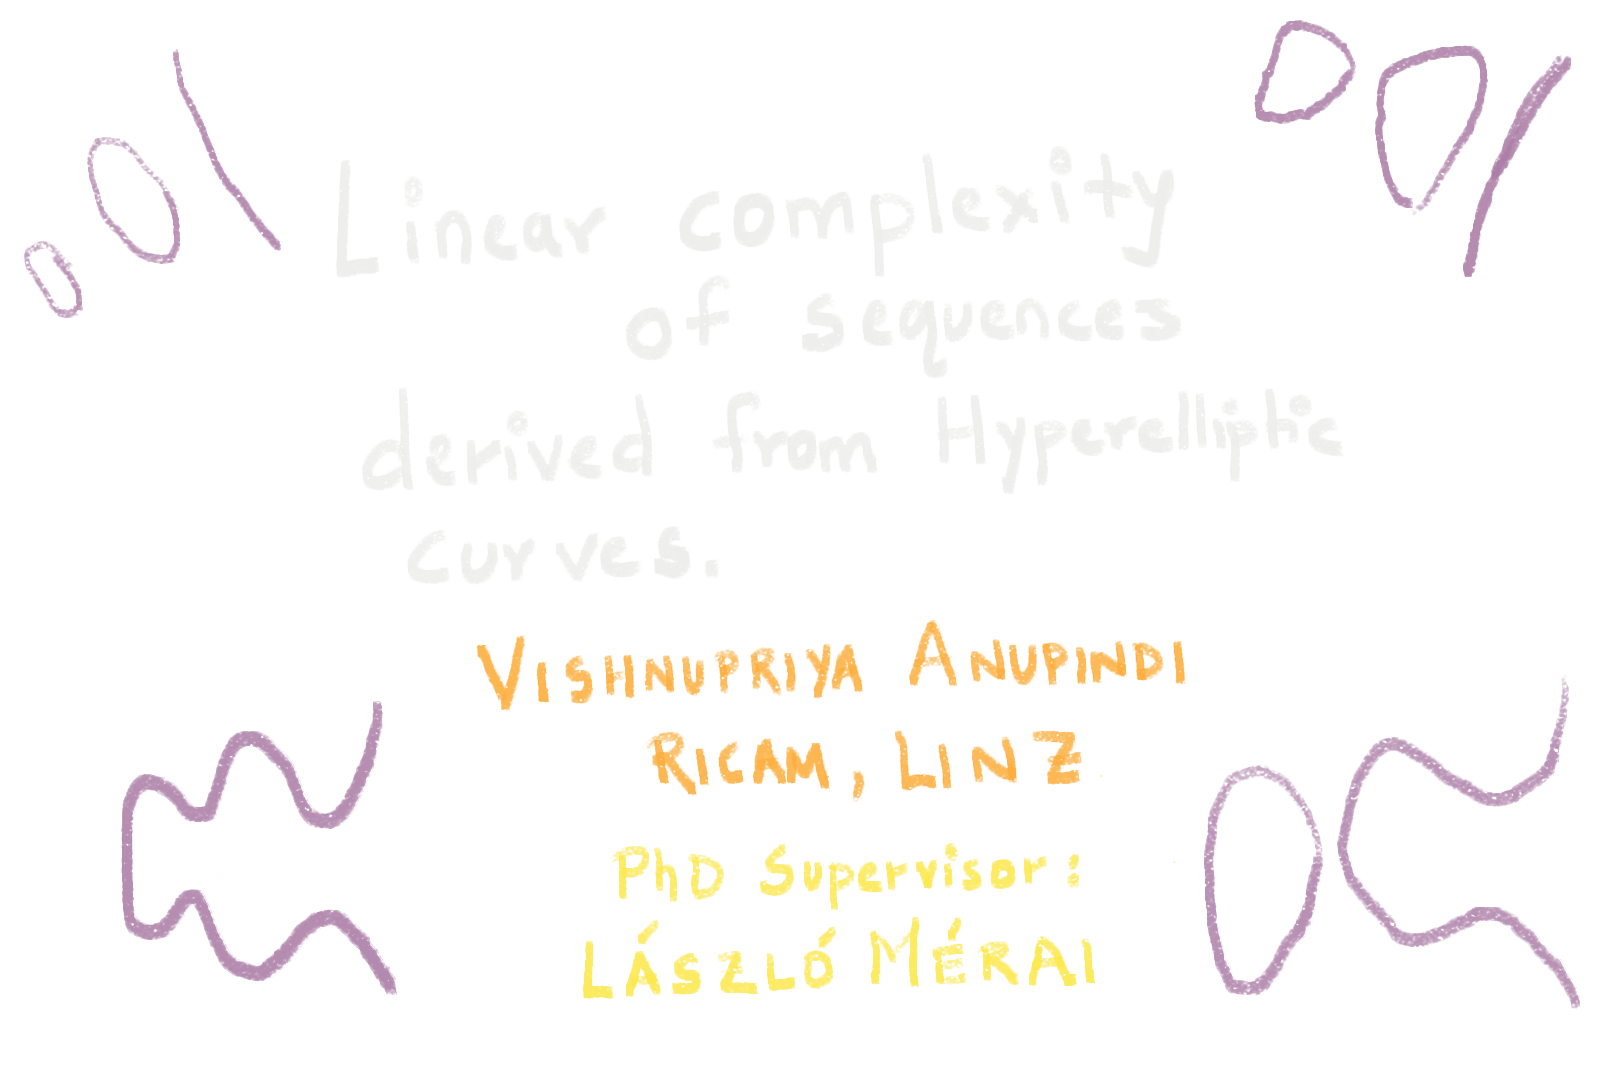 Linear complexity
of sequences
derived from Hyperelliptic
curves.
VISHNUPRIYA ANUPINDI
RICAM, LINZ
PhD Supervisor:
LÁSZLÓ MÉRAI